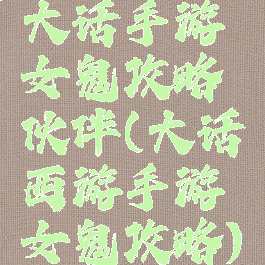 大话手游
女鬼攻略
伙伴(大话
西游手游
女鬼攻略)